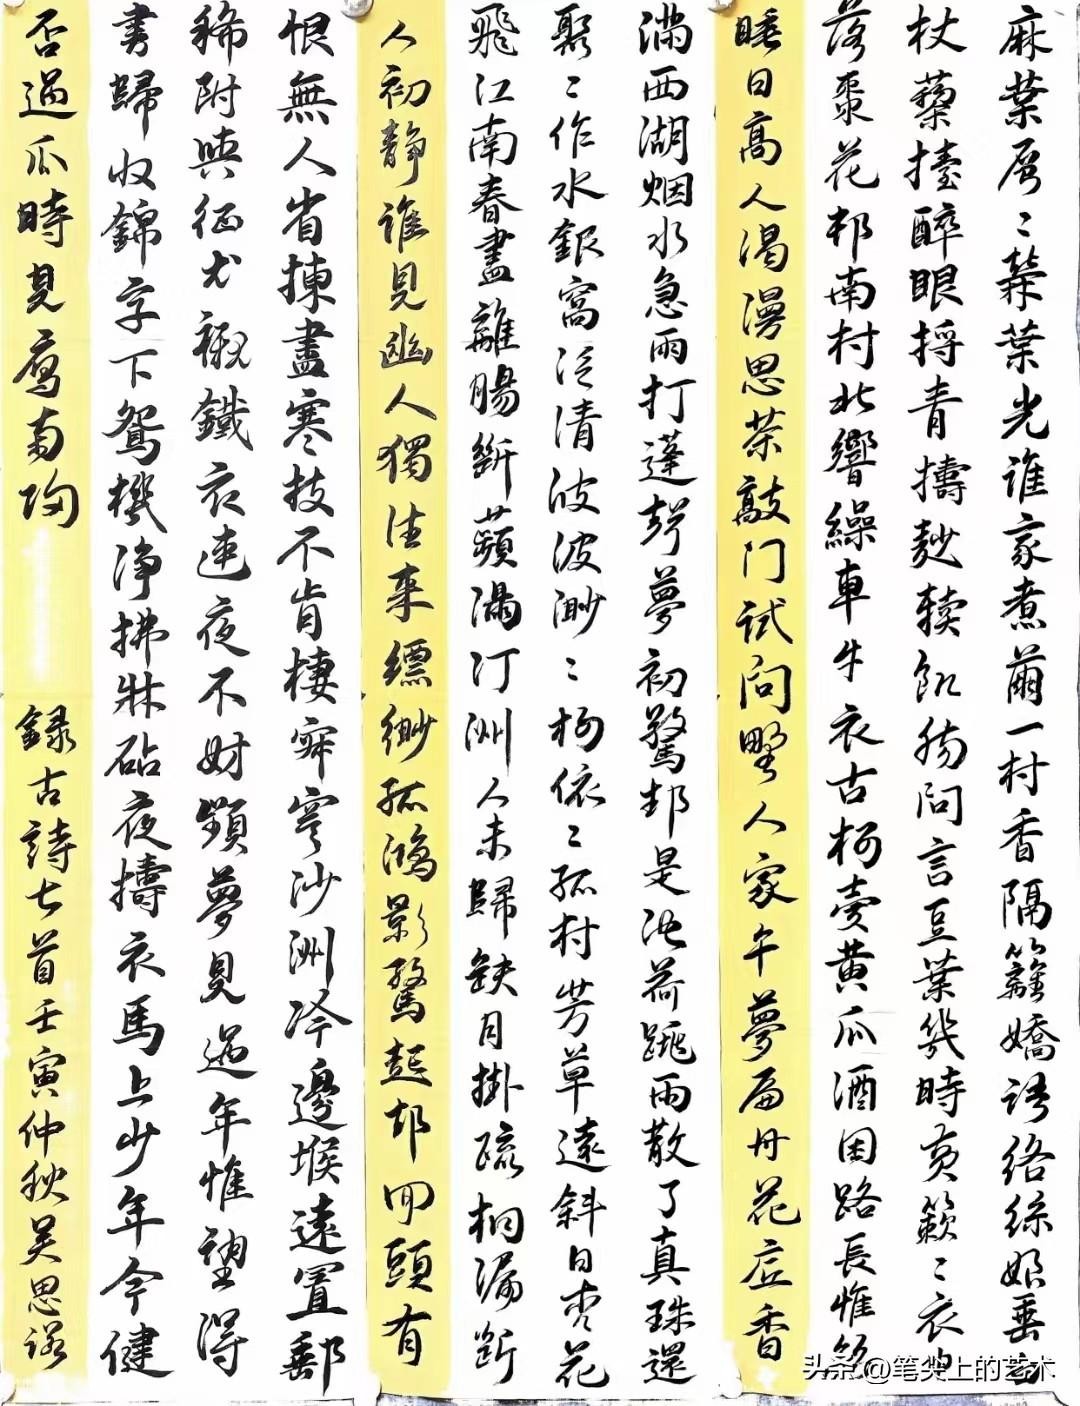 麻葉層〻檾葉光誰家煮繭一村香隔籬嬌語絡絲娘垂
杖藜擡醉眼捋青擣麨軟飢腸问言豆葉幾時黃簌〻衣巾
落棗花邨南村北響繰車牛衣古柳賣黃瓜酒困路長惟欲
睡日高人渴漫思茶敲门試问野人家午夢扁舟花底香
滿西湖烟水急雨打蓬聲夢初驚却是池荷跳雨散了真珠還
聚〻作水銀窩泛清波波渺〻柳依〻孤村芳草遠斜日杏花
飛江南春盡離腸斷蘋滿汀洲人未歸缺月掛疏桐漏斷
人初靜誰見幽人獨往来縹緲孤鴻影驚起却回頭有
恨無人省揀盡寒枝不肯棲寂寞沙洲冷邊堠遠置郵
稀附與征衣襯鐵衣連夜不妨頻夢見過年惟望得
書歸收錦字下鴛機净拂牀砧夜擣衣馬上少年今健
否過瓜時見雁南歸
録古詩七首壬寅仲秋吴思
头条@笔尖上的艺术